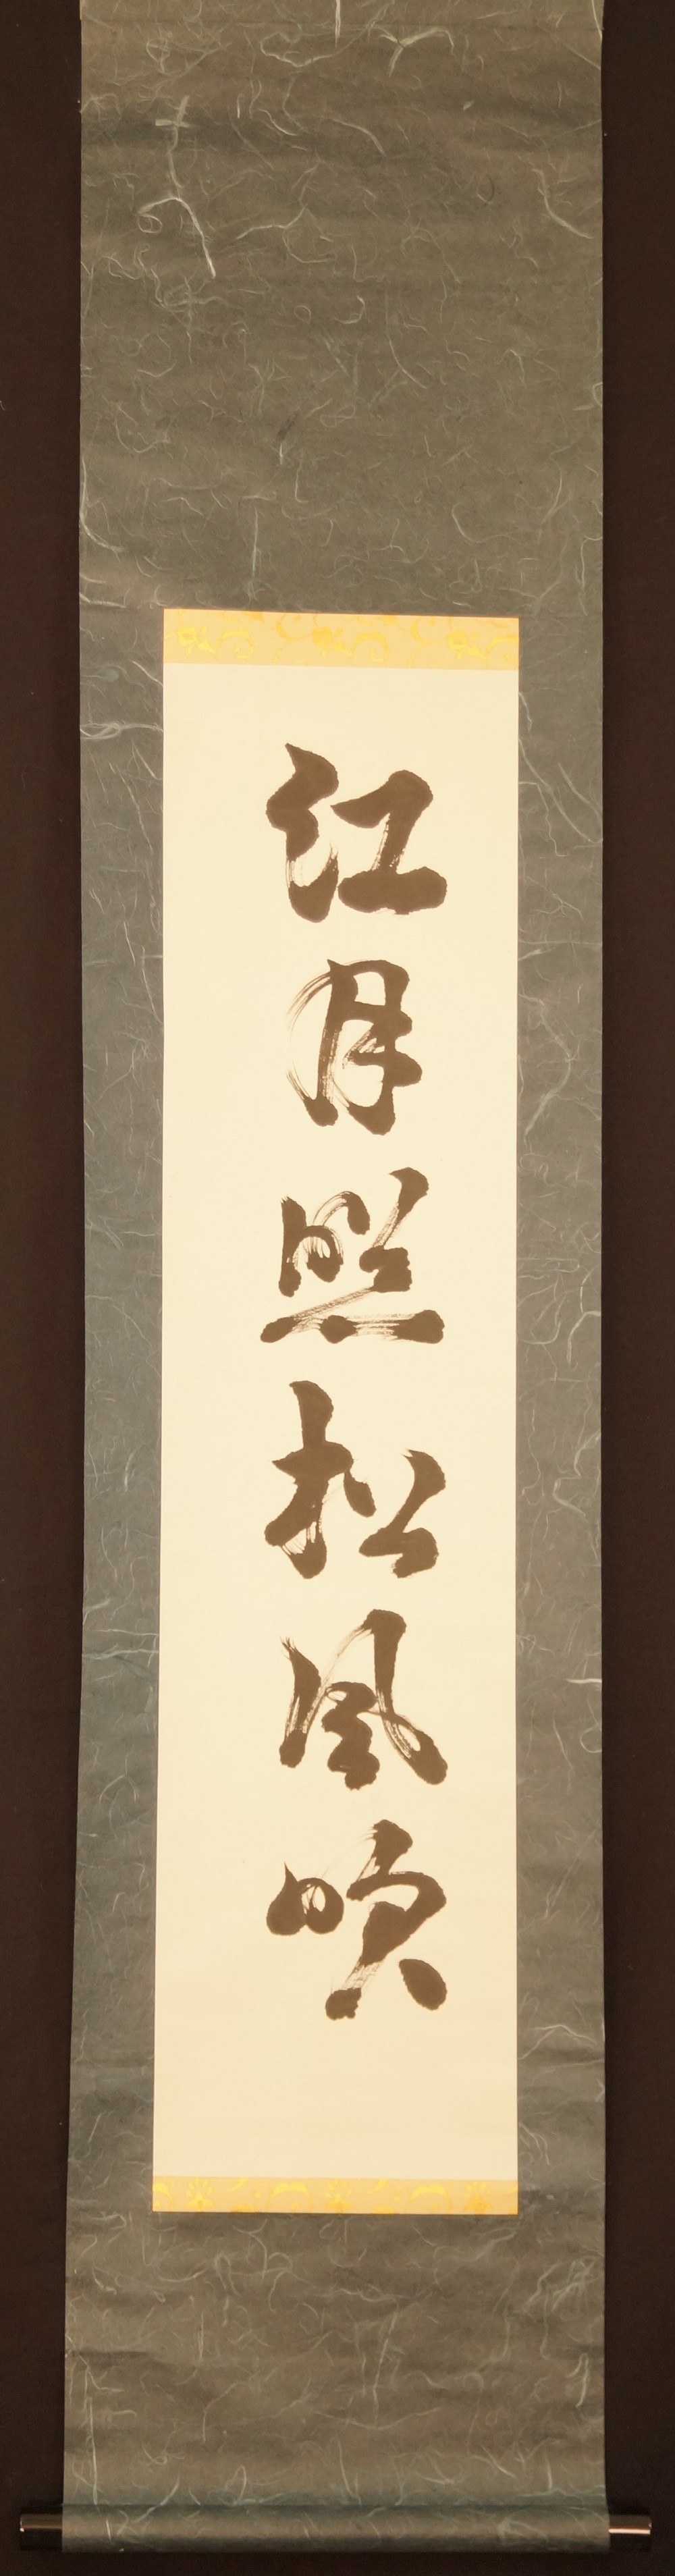 江月照松風吹